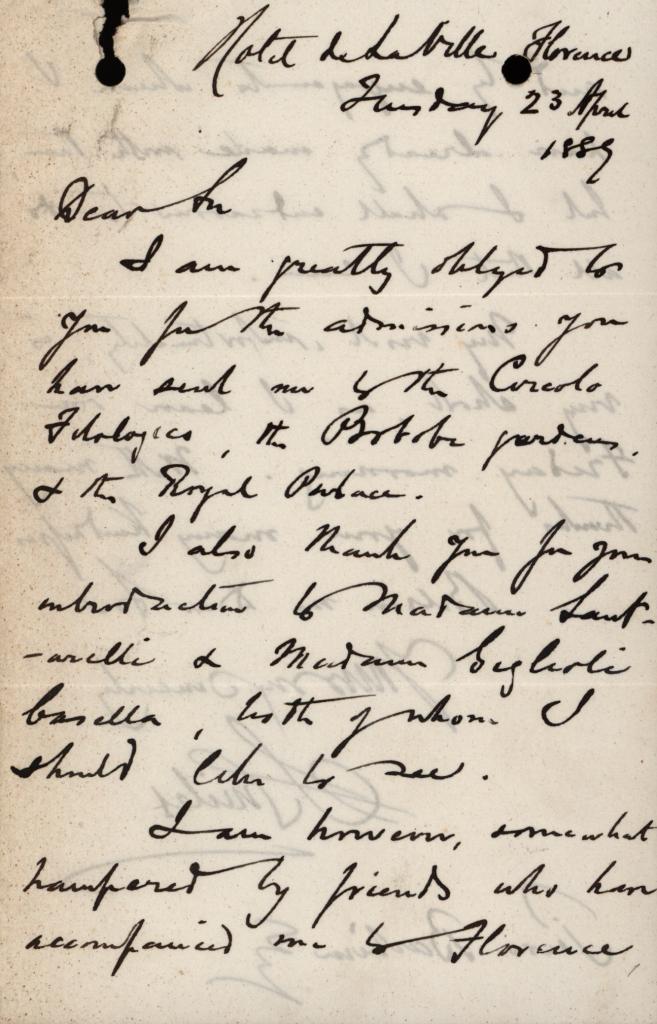 Hotel de La Ville Florence
Tuesday 23 April
1889
Dear Sir
I am greatly obliged to
you for the admissions you
have sent me to the Circolo
Filologico, the Boboli gardens,
& the Royal Palace.
I also thank you for your
introduction to Madame Sant-
-arelli & Madame Giglioli
Casella, both of whom I
should like to see.
I am however, somewhat
hampered by friends who have
accompanied me to Florence